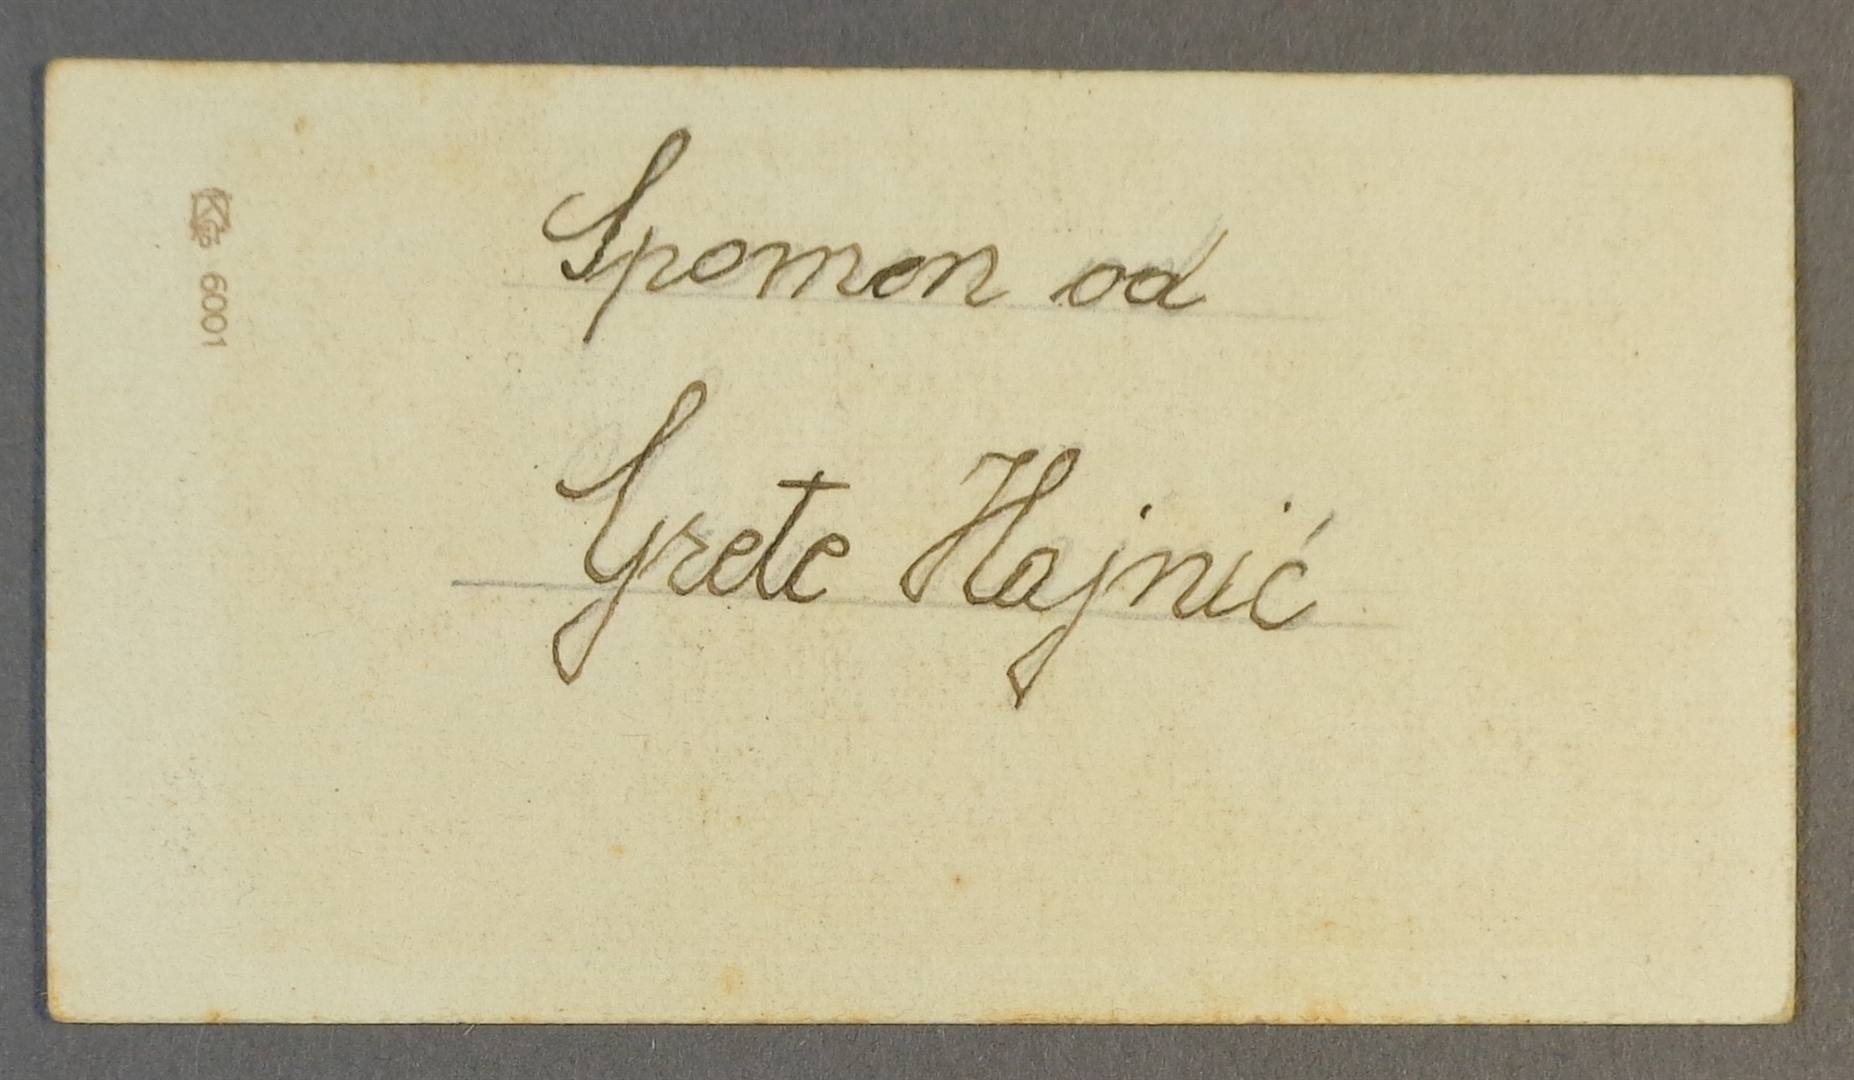 Spomen od
Grete Hajnić
6001